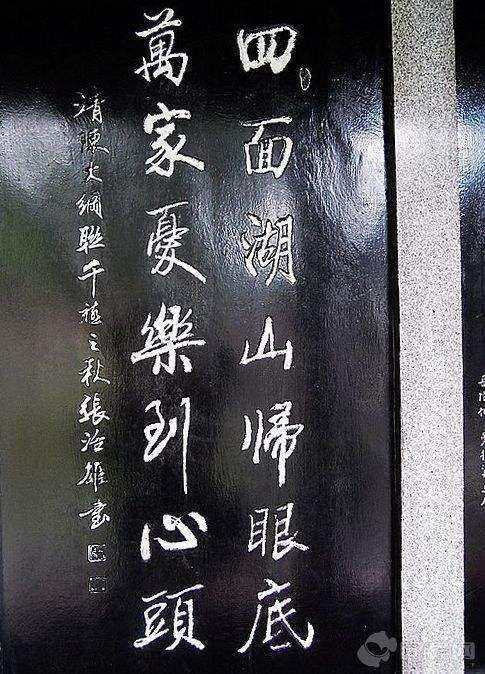 四面湖山归眼底
萬家憂樂到心頭
清陳大綱聯 千禧之秋 張治雄書